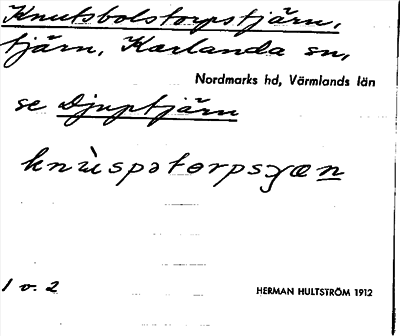 Knutsbolstorpstjärn,
tjärn, Karlanda sn,
Nordmarks hd, Värmlands län
se Djuptjärn
knùspətorpsɟæn
1 v. 2
HERMAN HULTSTRÖM 1912